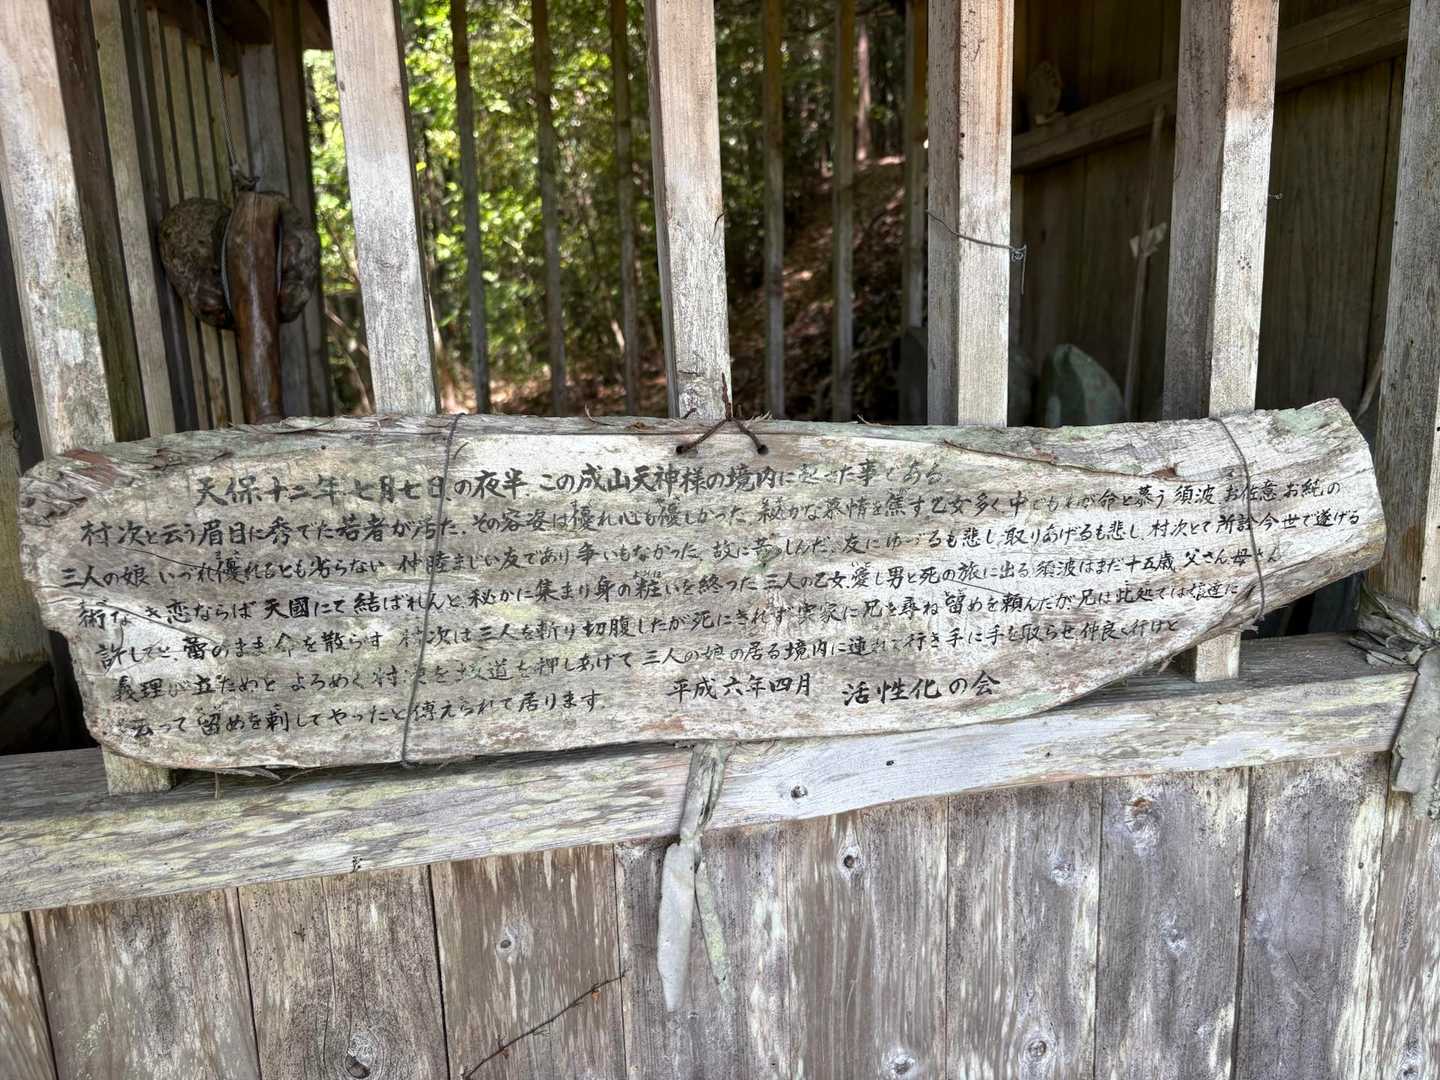 天保十二年七月七日の夜半、この成山天神様の境内に起きた事である
村次と云う眉目に秀でた若者が活た、その容姿は優れ心も優しかった、秘かな慕情を焦す乙女多く、中でもわが命と慕う 須波 お佐意 お純の
三人の娘、いづれ優れるとも劣らない 仲睦まじい友であり争いもなかった、故に苦しんだ、友にゆづるも悲し、取りあげるも悲し、村次とて所詮今世で遂げる
術なき恋ならば 天國にて結ばれんと、秘かに集まり身の粧いを終った 三人の乙女、愛し男と死の旅に出る、須波はまだ十五歳 父さん母さん
許してと、蕾のまま命を散らす 村次は三人を斬り切腹したが死にきれず 実家に兄を尋ね 留めを頼んだが、兄は此処では娘達に
義理が立ためと よろめく村次を坂道を押しあげて 三人の娘の居る境内に連れて行き 手に手を取らせ仲良く行けと
云って 留めを刺してやったと傳えられて居ります。 平成六年四月 活性化の会